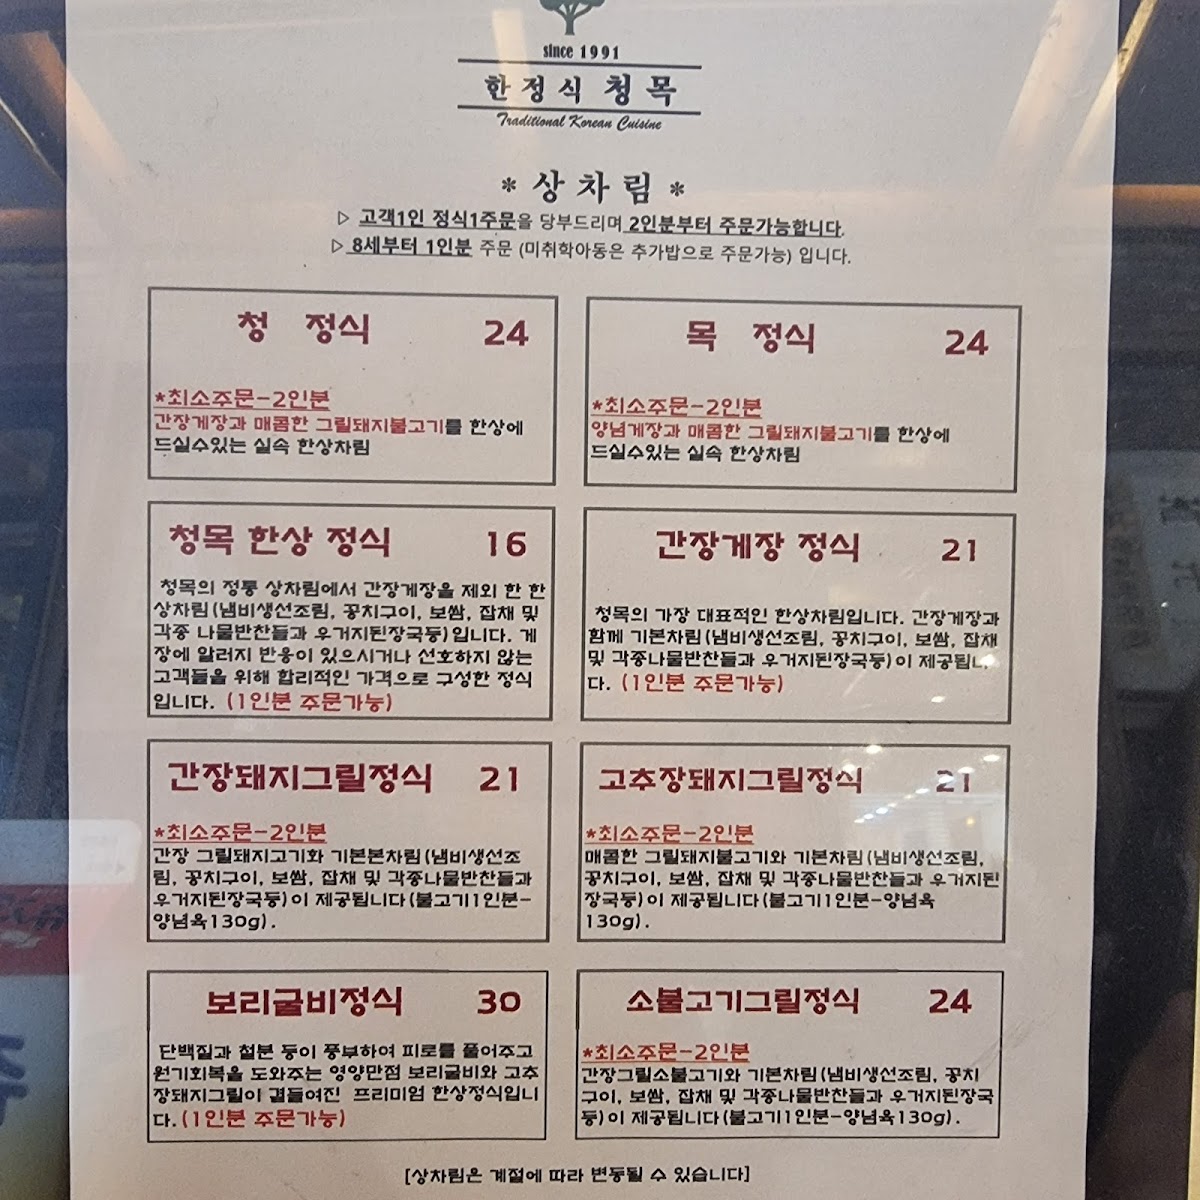 since 1991
한정식 청목
Traditional Korean Cuisine
* 상차림 *
▷ 고객1인 정식1주문을 당부드리며 2인분부터 주문가능합니다.
▷ 8세부터 1인분 주문 (미취학아동은 추가밥으로 주문가능) 입니다.
청 정식 24
*최소주문-2인분
간장게장과 매콤한 그릴돼지불고기를 한상에
드실수있는 실속 한상차림
목 정식 24
*최소주문-2인분
양념게장과 매콤한 그릴돼지불고기를 한상에
드실수있는 실속 한상차림
청목 한상 정식 16
청목의 정통 상차림에서 간장게장을 제외 한 한
상차림(냄비생선조림, 꽁치구이, 보쌈, 잡채 및
각종 나물반찬들과 우거지된장국등)입니다. 게
장에 알러지 반응이 있으시거나 선호하지 않는
고객들을 위해 합리적인 가격으로 구성한 정식
입니다. (1인분 주문가능)
간장게장 정식 21
청목의 가장 대표적인 한상차림입니다. 간장게장과
함께 기본차림(냄비생선조림, 꽁치구이, 보쌈, 잡채
및 각종나물반찬들과 우거지된장국등)이 제공됩니
다. (1인분 주문가능)
간장돼지그릴정식 21
*최소주문-2인분
간장 그릴돼지고기와 기본본차림(냄비생선조
림, 꽁치구이, 보쌈, 잡채 및 각종나물반찬들과
우거지된장국등)이 제공됩니다(불고기1인분-
양념육130g).
고추장돼지그릴정식 21
*최소주문-2인분
매콤한 그릴돼지불고기와 기본차림(냄비생선조림,
꽁치구이, 보쌈, 잡채 및 각종나물반찬들과 우거지된
장국등)이 제공됩니다(불고기1인분-양념육
130g).
보리굴비정식 30
단백질과 철분 등이 풍부하여 피로를 풀어주고
원기회복을 도와주는 영양만점 보리굴비와 고추
장돼지그릴이 곁들여진 프리미엄 한상정식입니
다. (1인분 주문가능)
소불고기그릴정식 24
*최소주문-2인분
간장그릴소불고기와 기본차림(냄비생선조림, 꽁치
구이, 보쌈, 잡채 및 각종나물반찬들과 우거지된장국
등)이 제공됩니다(불고기1인분-양념육130g).
[상차림은 계절에 따라 변동될 수 있습니다]